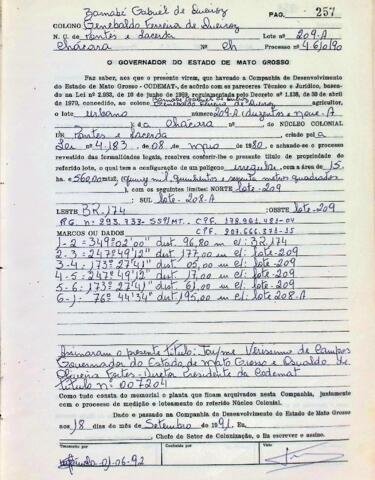 Barnabé Gabriel de Queiroz
PAG. 257
COLONO Genebaldo Ferreira de Queiroz
N. C. de Pontes e Lacerda Lote nº 209-A
Chácara nº Ch Processo nº 4.6/0190
O GOVERNADOR DO ESTADO DE MATO GROSSO
Faz saber, aos que o presente virem, que havendo a Companhia de Desenvolvimento
do Estado de Mato Grosso - CODEMAT-, de acôrdo com os pareceres Técnico e Jurídico, basea-
da na Lei nº 2.883, de 18 de junho de regulamentada pelo Decreto nº de 30 de
abril de 1970, concedido, ao colono Barnabé Gabriel de Queiroz
Genebaldo Ferreira de Queiroz agricultor,
o lote urbano número 209-A (duzentos e nove-A
) e a chácara nº do NÚCLEO COLONIAL
UR Pontes e Lacerda criado pela
Lei nº 4.183, de 08 de maio de 1980 e achando-se o processo
revestido das formalidades legais, resolveu conferir-lhe o presente título de propriedade
do referido lote, o qual tem a configuração de um polígono irregular com a área de 15.
ha. 560,00 metros (quinze mil, quinhentos e sessenta metros quadrados
), com os seguintes limites: NORTE lote-209
; SUL lote-208-A
LESTE BR.174 ;OESTE lote-209
RG. nº 293.737-SSP/MT. CPF. 178.961.491-04
MARCOS OU DADOS CPF.
1-2 = 349º02'00" dist. 96,80 m c/: BR.174
2-3 = 247º49'12" dist. 177,00 m c/: lote-209
3-4: 173º27'41" dist. 05,00 m c/: lote-209
4-5: 247º49'12" dist. 17,00 m c/: lote-209
5-6: 173º27'41" dist. 61,00 m c/: lote-209
6-1: 76º44'34" dist. 195,00 m c/: lote-208-A
Assinaram o presente título: Jayme Verissimo de Campos
Governador do Estado de Mato Grosso e Osvaldo de
Oliveira Fortes-Diretor Presidente da Codemat
Título nº 007204
Como tudo consta do memorial e planta que ficam arquivados nesta Companhia, juntamente
com o processo de medição e loteamento do referido Núcleo Colonial.
Dado e passado na Companhia de Desenvolvimento do Estado de Mato Grosso
aos 18 dias do mês de Setembro de 1991. Eu,
, Chefe do Setor de Colonização, o fiz escrever e assino.
Transcrito por
Conferido por
Visto
01-06-92